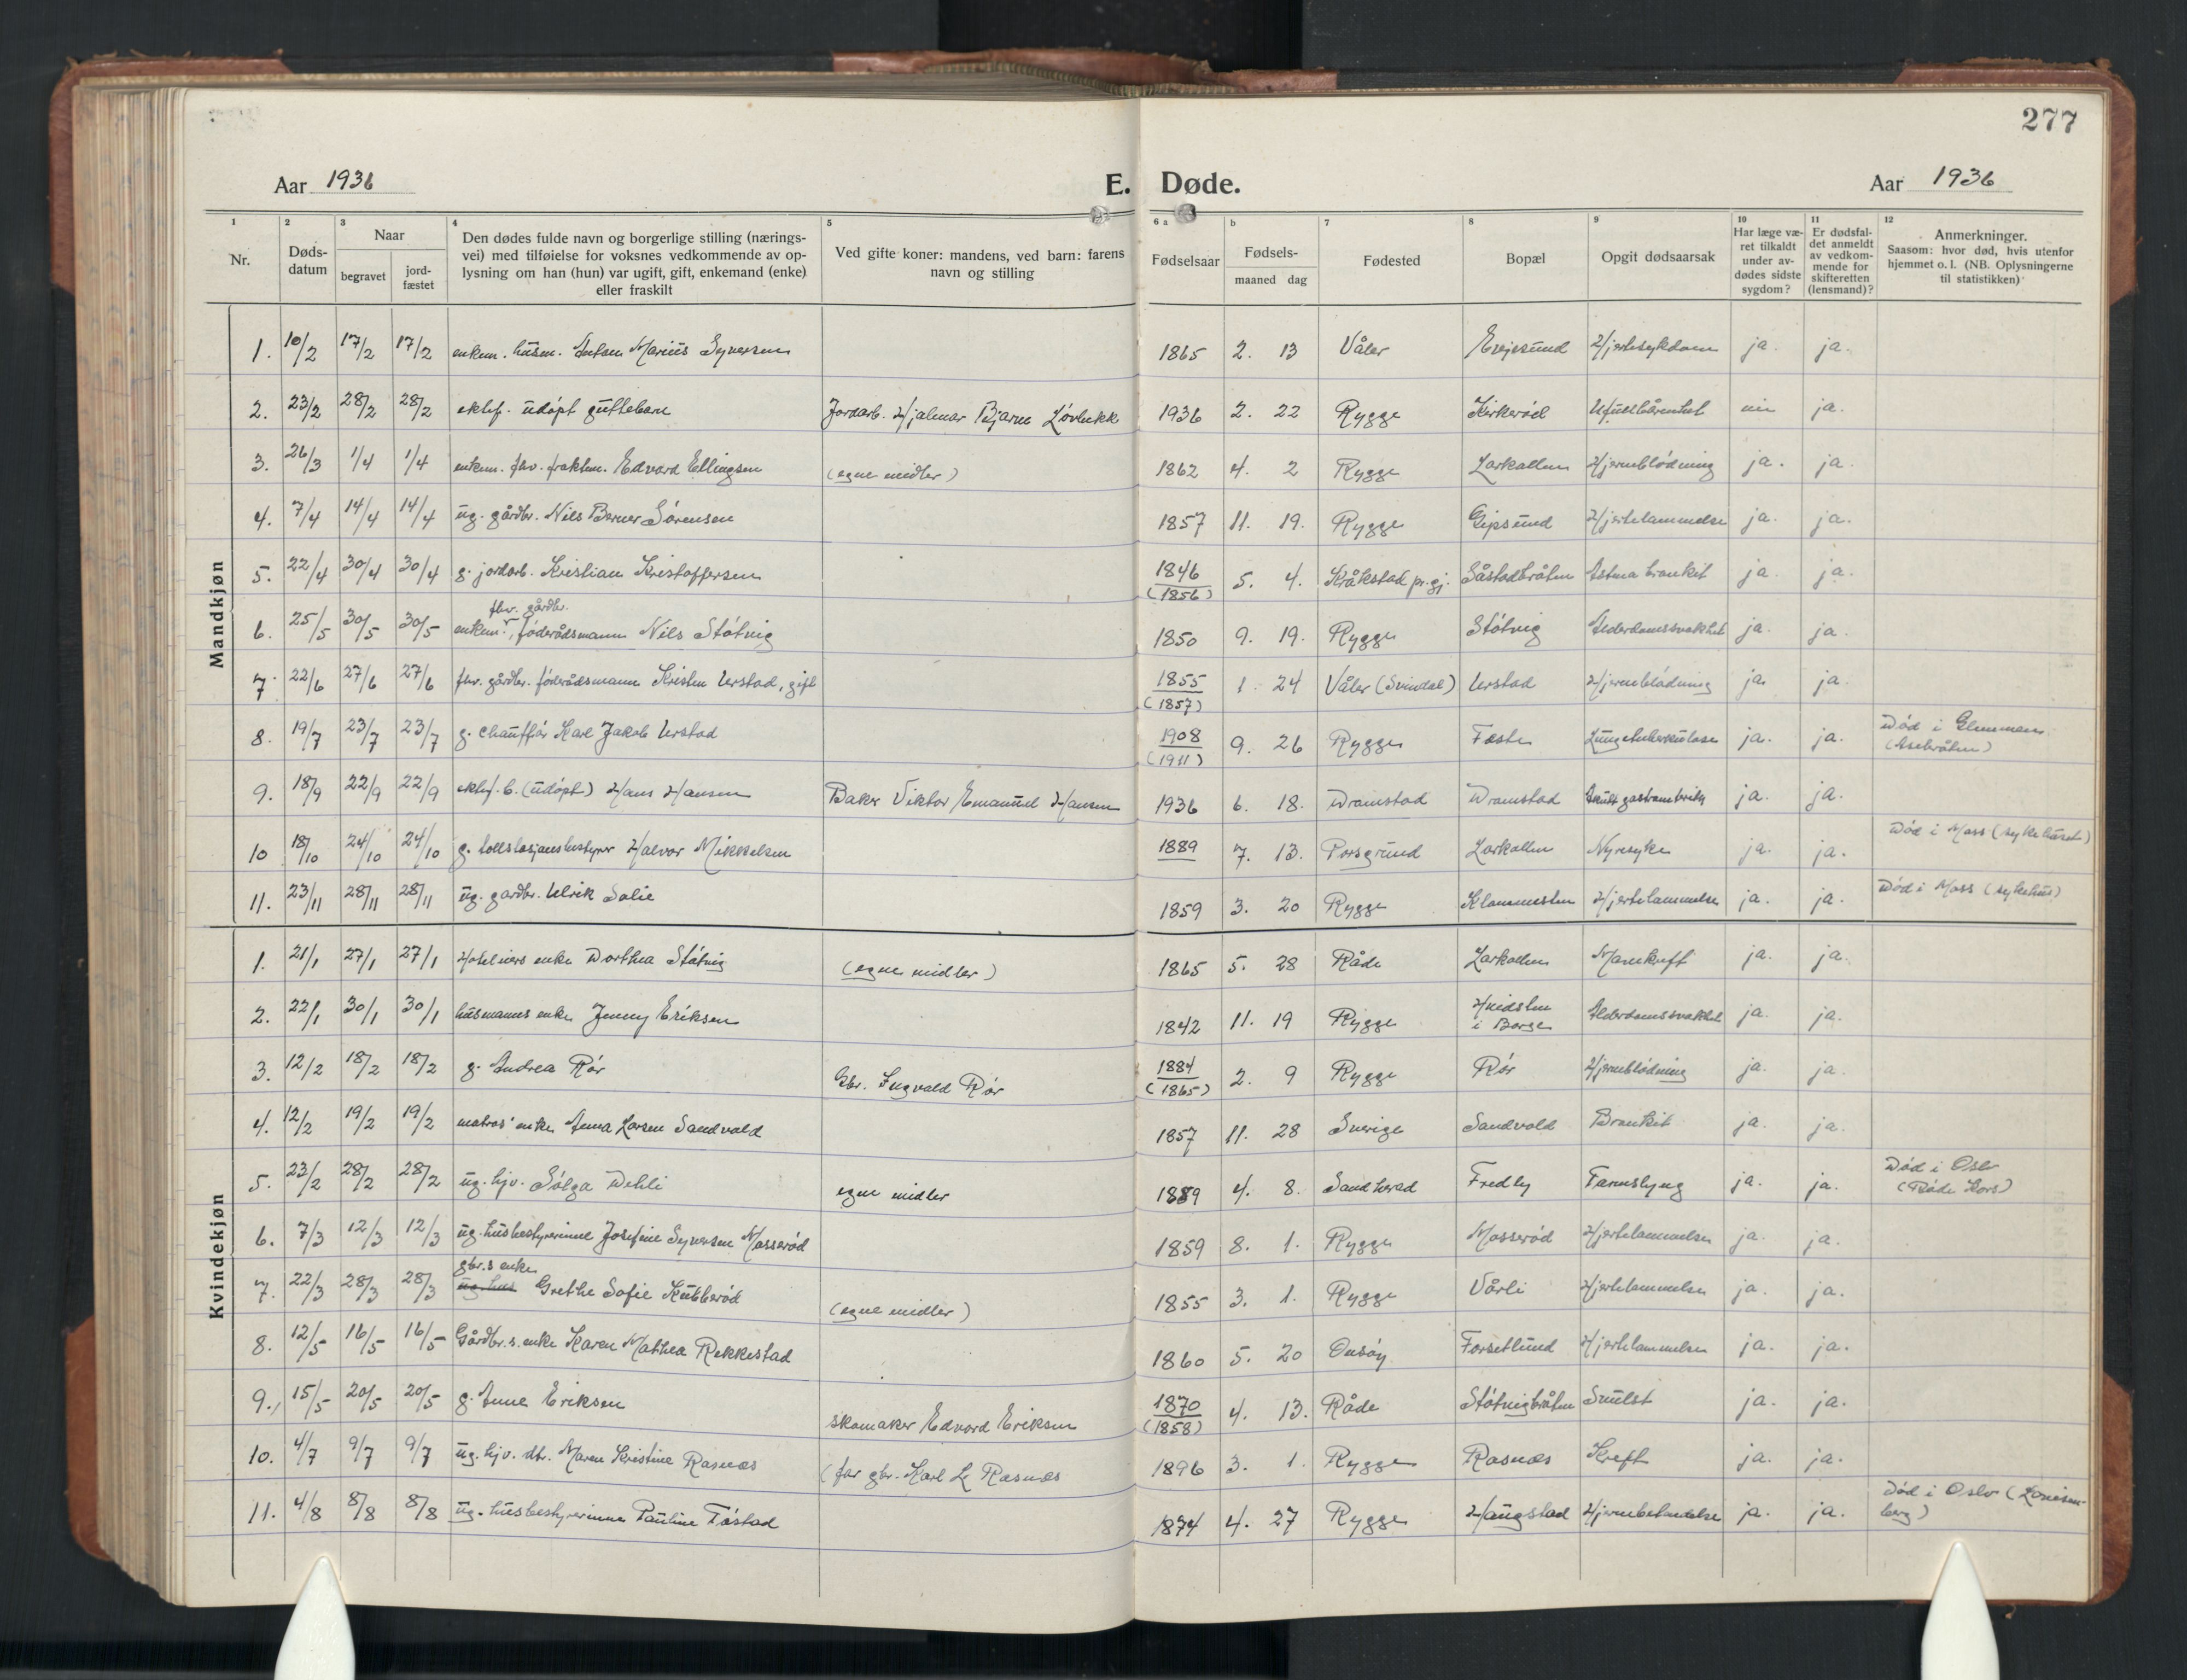 277
Aar 1936 E. Døde. Aar 1936
1 2 3 4 5 6 a b 7 8 9 10 11 12
Nr. Døds-datum Naar begravet jord-fæstet Den dødes fulde navn og borgerlige stilling (nærings-vei) med tilføielse for voksnes vedkommende av op-lysning om han (hun) var ugift, gift, enkemand (enke) eller fraskilt Ved gifte koner: mandens, ved barn: farens navn og stilling Fødselsaar Fødsels- maaned dag Fødested Bopæl Opgit dødsaarsak Har læge væ-ret tilkaldt under av-dødes sidste sygdom? Er dødsfal-det anmeldt av vedkom-mende for skifteretten (lensmand)? Anmerkninger. Saasom: hvor død, hvis utenfor hjemmet o. l. (NB. Oplysningerne til statistikken)
Mandkjøn
1. 10/2 17/2 17/2 enkem. husm. Anton Marius Syversen 1865 2. 13 Våler Evjesund Hjertesykdom ja. ja.
2. 23/2 28/2 28/2 ektef. udøpt guttebarn Jordarb. Hjalmar Bjarne Løvbukk 1936 2. 22 Rygge Kirkerød Ufullbårenhet nei ja.
3. 26/3 1/4 1/4 enkem. fhv. fraktem. Edvard Ellingsen (egne midler) 1862 4. 2 Rygge Larkollen Hjerneblødning ja. ja.
4. 7/4 14/4 14/4 ug. gårdbr. Nils Berner Sørensen 1857 11. 19. Rygge Gipsund Hjertelammelse ja. ja.
5. 22/4 30/4 30/4 g. jordarb. Kristian Kristoffersen 1846 (1856) 5. 4. Kråkstad pr.gj. Såstadbråten Astma bronkit ja. ja.
fhv. gårdbr.
6. 25/5 30/5 30/5 enkem., føderådsmann Nils Støtvig 1850 9. 19. Rygge Støtvig Alderdomssvakhet ja. ja.
7. 22/6 27/6 27/6 fhv. gårdbr. føderådsmann Kristen Urstad, gift 1855 (1857) 1. 24 Våler (Svindal) Urstad Hjerneblødning ja. ja.
8. 19/7 23/7 23/7 g. chauffør Karl Jakob Urstad 1908 (1911) 9. 26 Rygge Feste Lungetuberkulose ja. ja. Død i Glemmen (Åsebråten)
9. 18/9 22/9 22/9 ektef. b. (udøpt) Hans Hansen Baker Viktor Emanuel Hansen 1936 6. 18. Dramstad Dramstad Akutt gastroenterik ja. ja.
10 18/10 24/10 24/10 g. tollstasjonsbestyrer Halvor Mikkelsen 1889 7. 13. Porsgrund Larkollen Nyresyke ja. ja. Død i Moss (sykehuset)
11. 23/11 28/11 28/11 ug. gardbr. Ulrik Solie 1859 3. 20 Rygge Klommesten Hjertelammelse ja. ja. Død i Moss (sykehus)
Kvindekjøn
1. 21/1 27/1 27/1 Hoteleiers enke Dorthea Støtvig (egne midler) 1865 5. 28 Råde Larkollen Mavekreft ja. ja.
2. 22/1 30/1 30/1 husmanns enke Jenny Eriksen 1842 11. 19 Rygge Hvidsten i Borge Alderdomssvakhet ja. ja.
3. 12/2 18/2 18/2 g. Andrea Rør Gbr. Ingvald Rør 1884 (1865) 2. 9 Rygge Rør Hjerneblødning ja. ja.
4. 12/2 19/2 19/2 matros' enke Anna Larsen Sandvold 1857 11. 28 Sverige Sandvold Bronkit ja. ja.
5. 23/2 28/2 28/2 ug. hjv. Solga Dehli egne midler 1889 4. 8. Sandherad Fredly Tarmslyng ja. ja. Død i Oslo (Røde Kors)
6. 7/3 12/3 12/3 ug. husbestyrerinne Josefine Syversen Mosserød 1859 8. 1. Rygge Mosserød Hjertelammelse ja. ja.
gbr.s enke
7. 22/3 28/3 28/3 ug. hus Grethe Sofie Kubberød (egne midler) 1855 3. 1. Rygge Vårli Hjertelammelse ja. ja.
8. 12/5 16/5 16/5 Gårdbr.s. enke Karen Mathea Rekkestad 1860 5. 20 Onsøy Forsetlund Hjertelammelse ja. ja.
9. 15/5 20/5 20/5 g. Anne Eriksen skomaker Edvard Eriksen 1870 (1858) 4. 13. Råde Støtvigbråten Svulst ja. ja.
10. 4/7 9/7 9/7 ug. hjv. dtr. Maren Kristine Rasnæs (far gbr. Karl L. Rasnæs 1896 3. 1. Rygge Rasnæs Kreft ja. ja.
11. 4/8 8/8 8/8 ug. husbestyrerinne Pauline Tøstad 1874 4. 27 Rygge Haugstad Hjernebetendelse ja. ja. Død i Oslo (Lovisenberg)